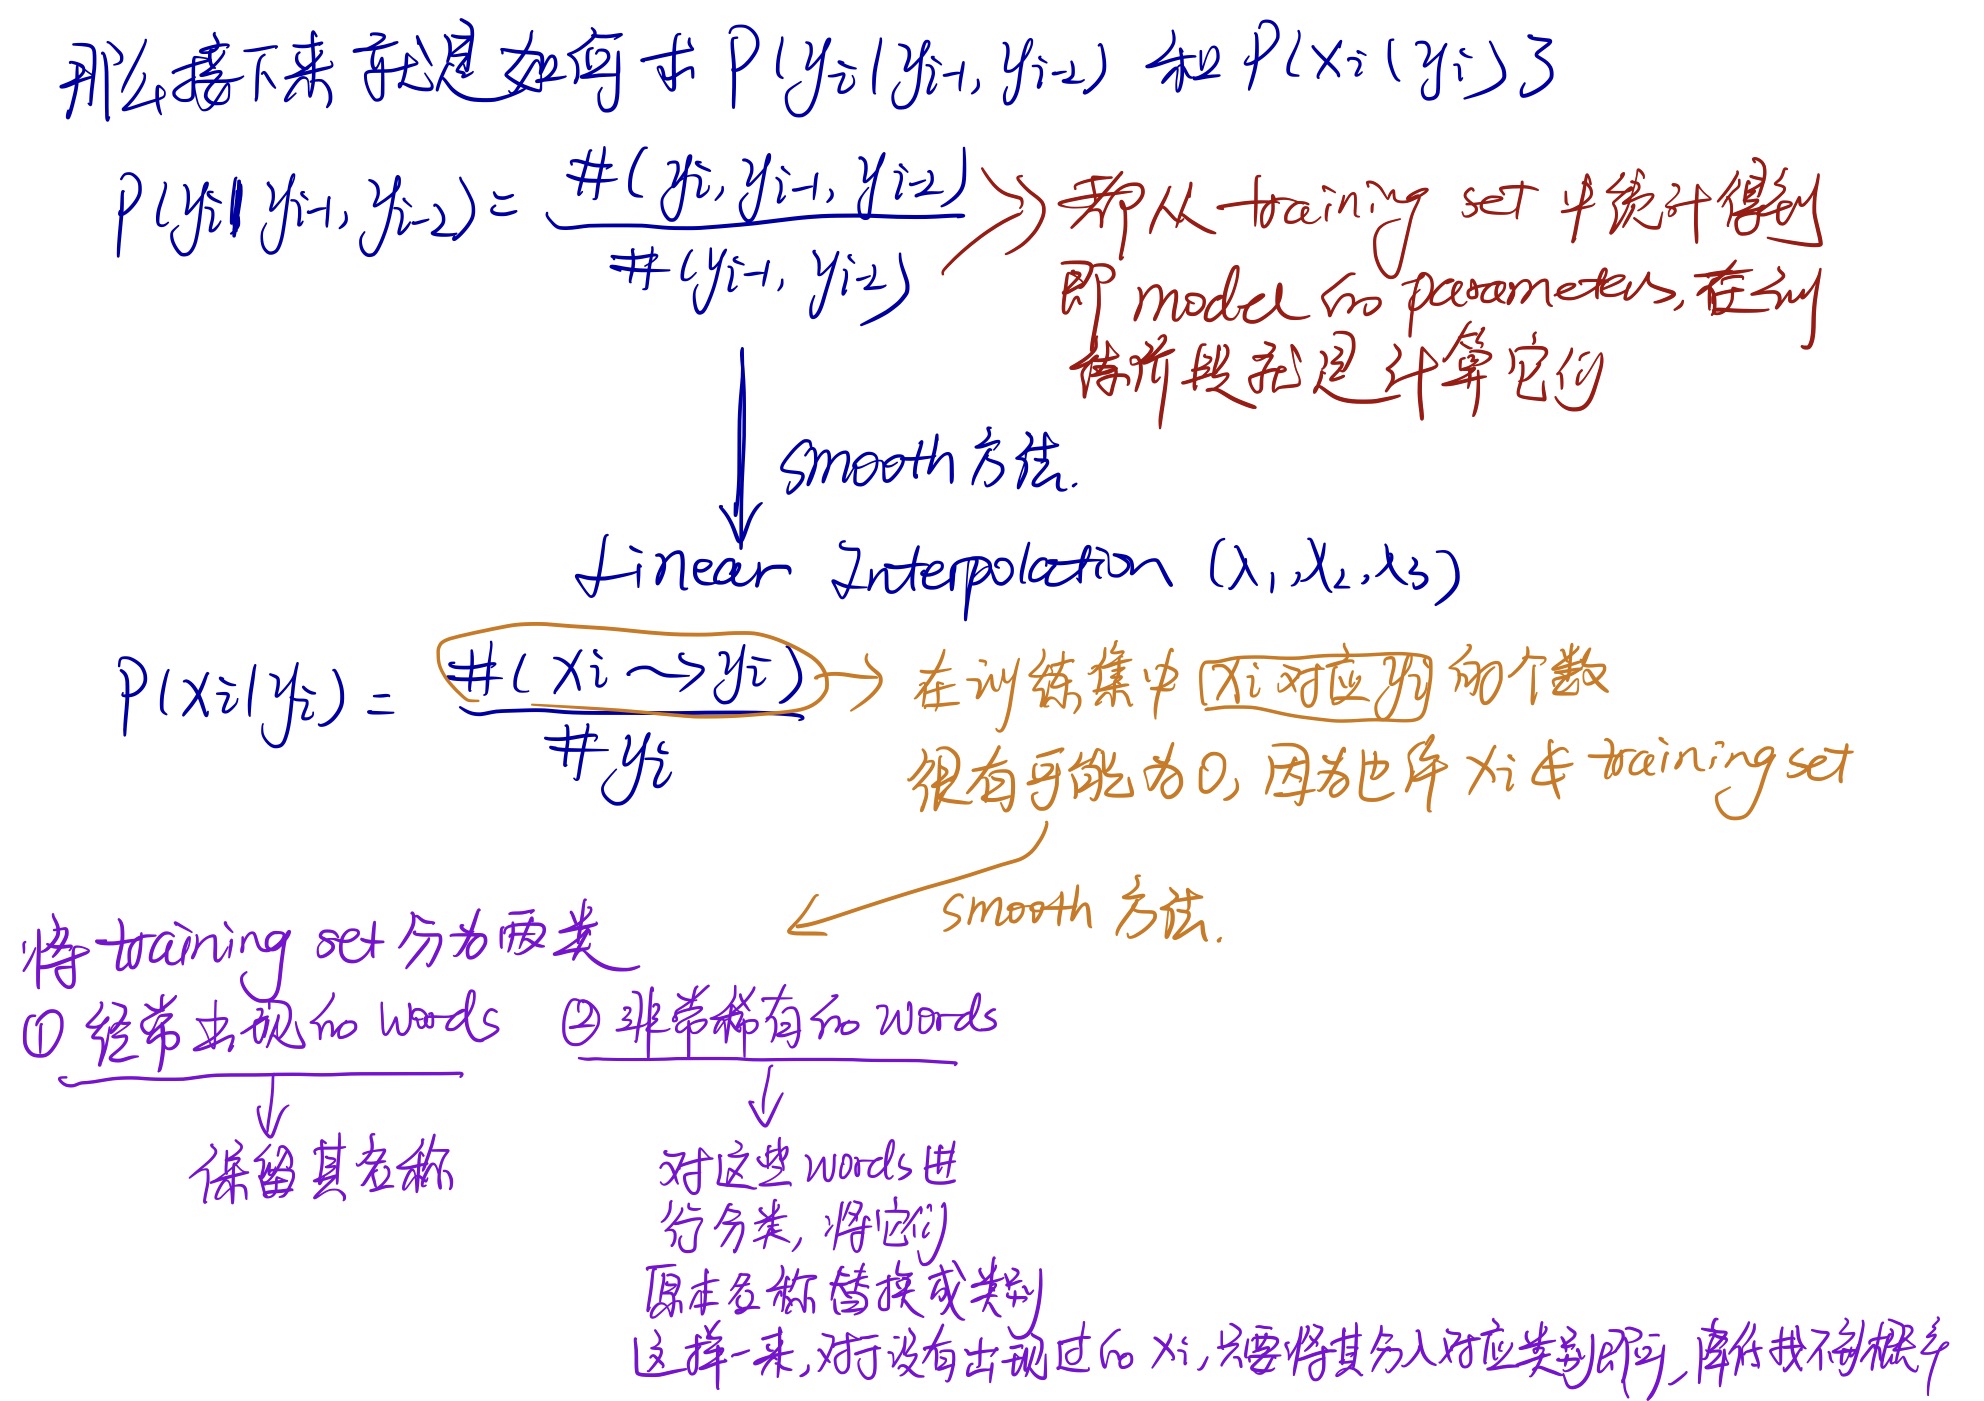 那么接下来就是如何求 P(yi|yi-1, yi-2) 和 P(xi|yi)了
P(yi|yi-1, yi-2) = #(yi, yi-1, yi-2) / #(yi-1, yi-2)
都从 training set 中统计得到
即 model 的 parameters, 在训
练阶段就是计算它们
smooth 方法.
Linear Interpolation (λ1, λ2, λ3)
P(xi|yi) = #(xi ⇝ yi) / # yi
在训练集中 xi 对应 yi 的个数
很有可能为0, 因为也许 xi ∉ training set
smooth 方法.
将 training set 分为两类
① 经常出现的 words ② 非常稀有的 words
保留其名称
对这些 words 进
行分类, 将它们
原本名称替换成类别
这样一来, 对于没有出现过的 xi, 只要将其分入对应类别即可, 降低找不到概率